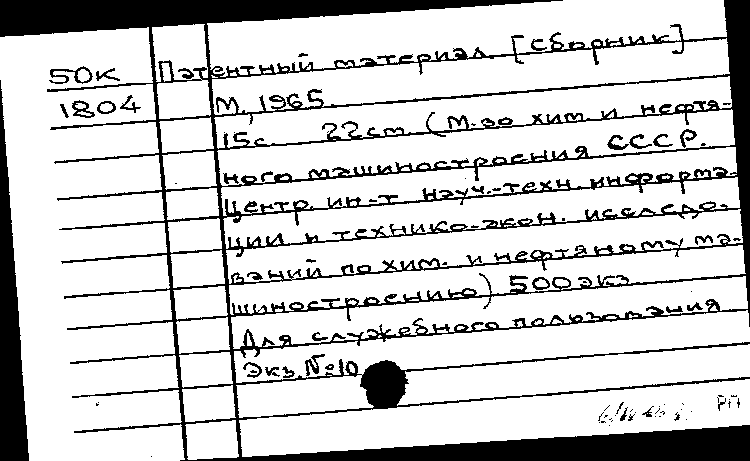 50К Патентный материал. [Сборник]
1804 М., 1965.
15с. 22см (М-во хим и нефтя-
ного машиностроения СССР.
Центр. ин-т науч.-техн. информа-
ции и технико-экон. исследо-
ваний по хим. и нефтяному ма-
шиностроению) 500 экз.
Для служебного пользования
Экз. №10
РП